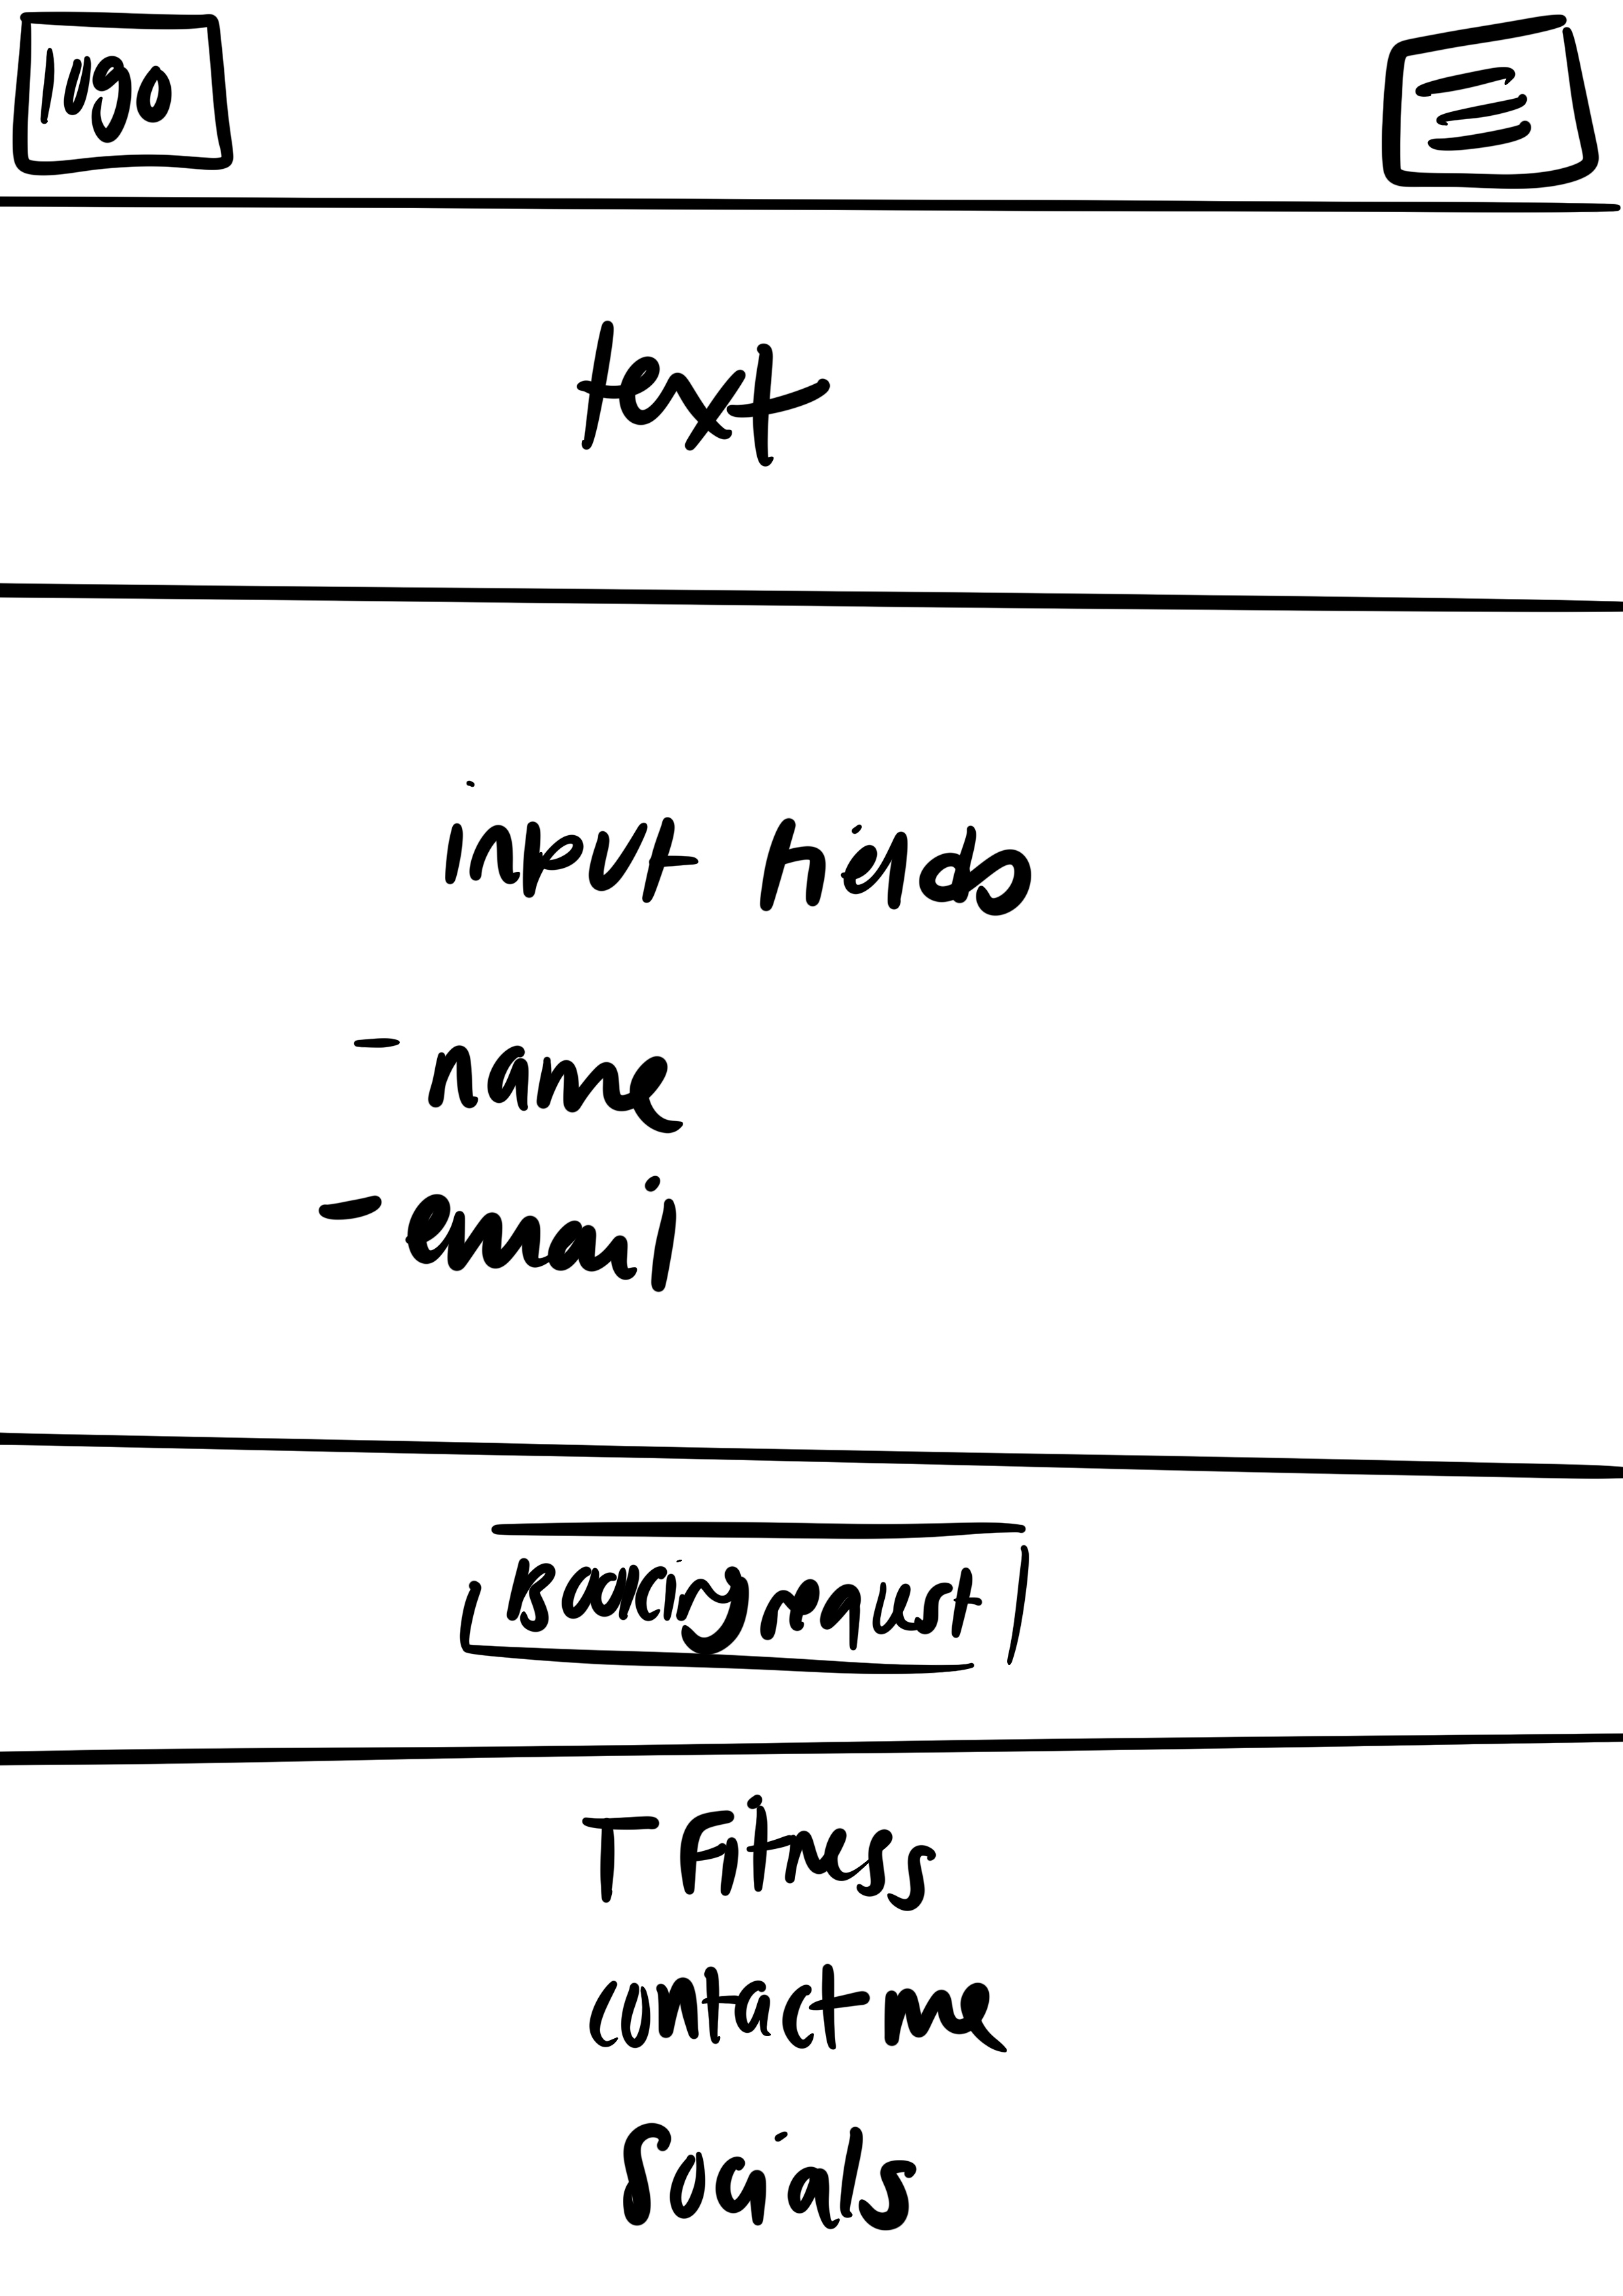 logo
text
input fields
- name
- email
Coaching request
T Fitness
contact me
Socials